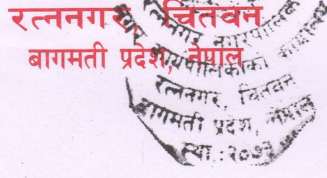 रत्ननगर, चितवन
बागमती प्रदेश, नेपाल
रत्ननगर नगरपालिका
नगरपालिकाको कार्यालय
रत्ननगर, चितवन
बागमती प्रदेश, नेपाल
स्था :२०७३